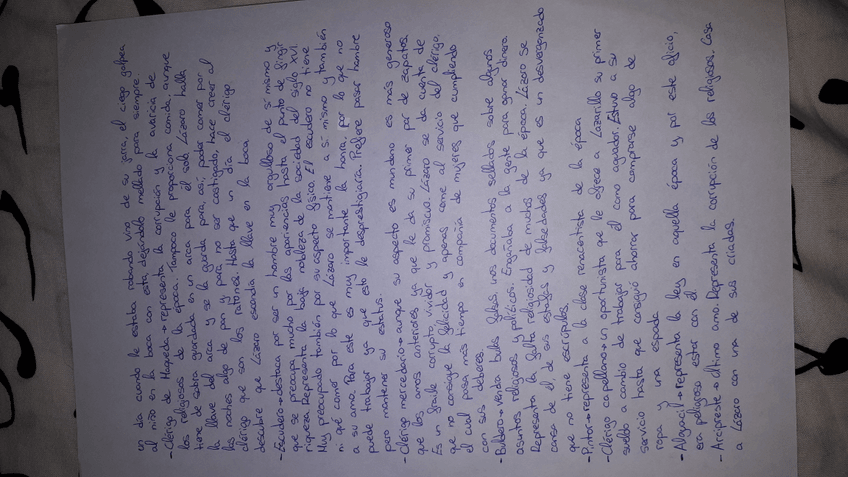 un día cuando le estaba robando vino de su jarra, el ciego golpea
al niño en la boca con esta dejándolo mellado para siempre
- Clérigo de Maqueda → representa la corrupción y la avaricia de
los religiosos de la época. Tampoco le proporciona comida, aunque
tiene de sobra guardada en un arca para él solo. Lázaro halla
la llave del arca y se la guarda para, así, poder comer por
las noches algo de pan y para no ser castigado, hace creer al
clérigo que son los ratones. Hasta que un día el clérigo
descubre que Lázaro escondía la llave en la boca.
- Escudero → destaca por ser un hombre muy orgulloso de sí mismo y
que se preocupa mucho por las apariencias hasta el punto de fingir
riqueza. Representa la baja nobleza de la sociedad del siglo XVI.
Muy preocupado también por su aspecto físico. El escudero no tiene
ni qué comer por lo que Lázaro se mantiene a sí mismo y también
a su amo. Para este es muy importante la honra, por lo que no
puede trabajar ya que esto le desprestigiaría. Prefiere pasar hambre
pero mantener su estatus.
- Clérigo mercedario → aunque su aspecto es mundano es más generoso
que los amos anteriores ya que le da su primer par de zapatos.
Es un fraile corrupto, vividor y promiscuo. Lázaro se da cuenta de
que no consigue la felicidad y apenas come al servicio del clérigo,
el cual pasa más tiempo en compañía de mujeres que cumpliendo
con sus deberes.
- Buldero → vendía bulas falsas, unos documentos sellados sobre algunos
asuntos religiosos y políticos. Engañaba a la gente para ganar dinero.
Representa la falsa religiosidad de muchos de la época. Lázaro se
cansa de él de sus estafas y falsedades ya que es un desvergonzado
que no tiene escrúpulos.
- Pintor → representa a la clase renacentista de la época
- Clérigo capellano → un oportunista que le ofrece a Lazarillo su primer
sueldo a cambio de trabajar para él como aguador. Estuvo a su
servicio hasta que consiguió ahorrar para comprarse algo de
ropa y una espada
- Alguacil → representa la ley en aquella época y por este oficio,
era peligroso estar con él
- Arcipreste → último amo. Representa la corrupción de los religiosos. Casa
a Lázaro con una de sus criadas.